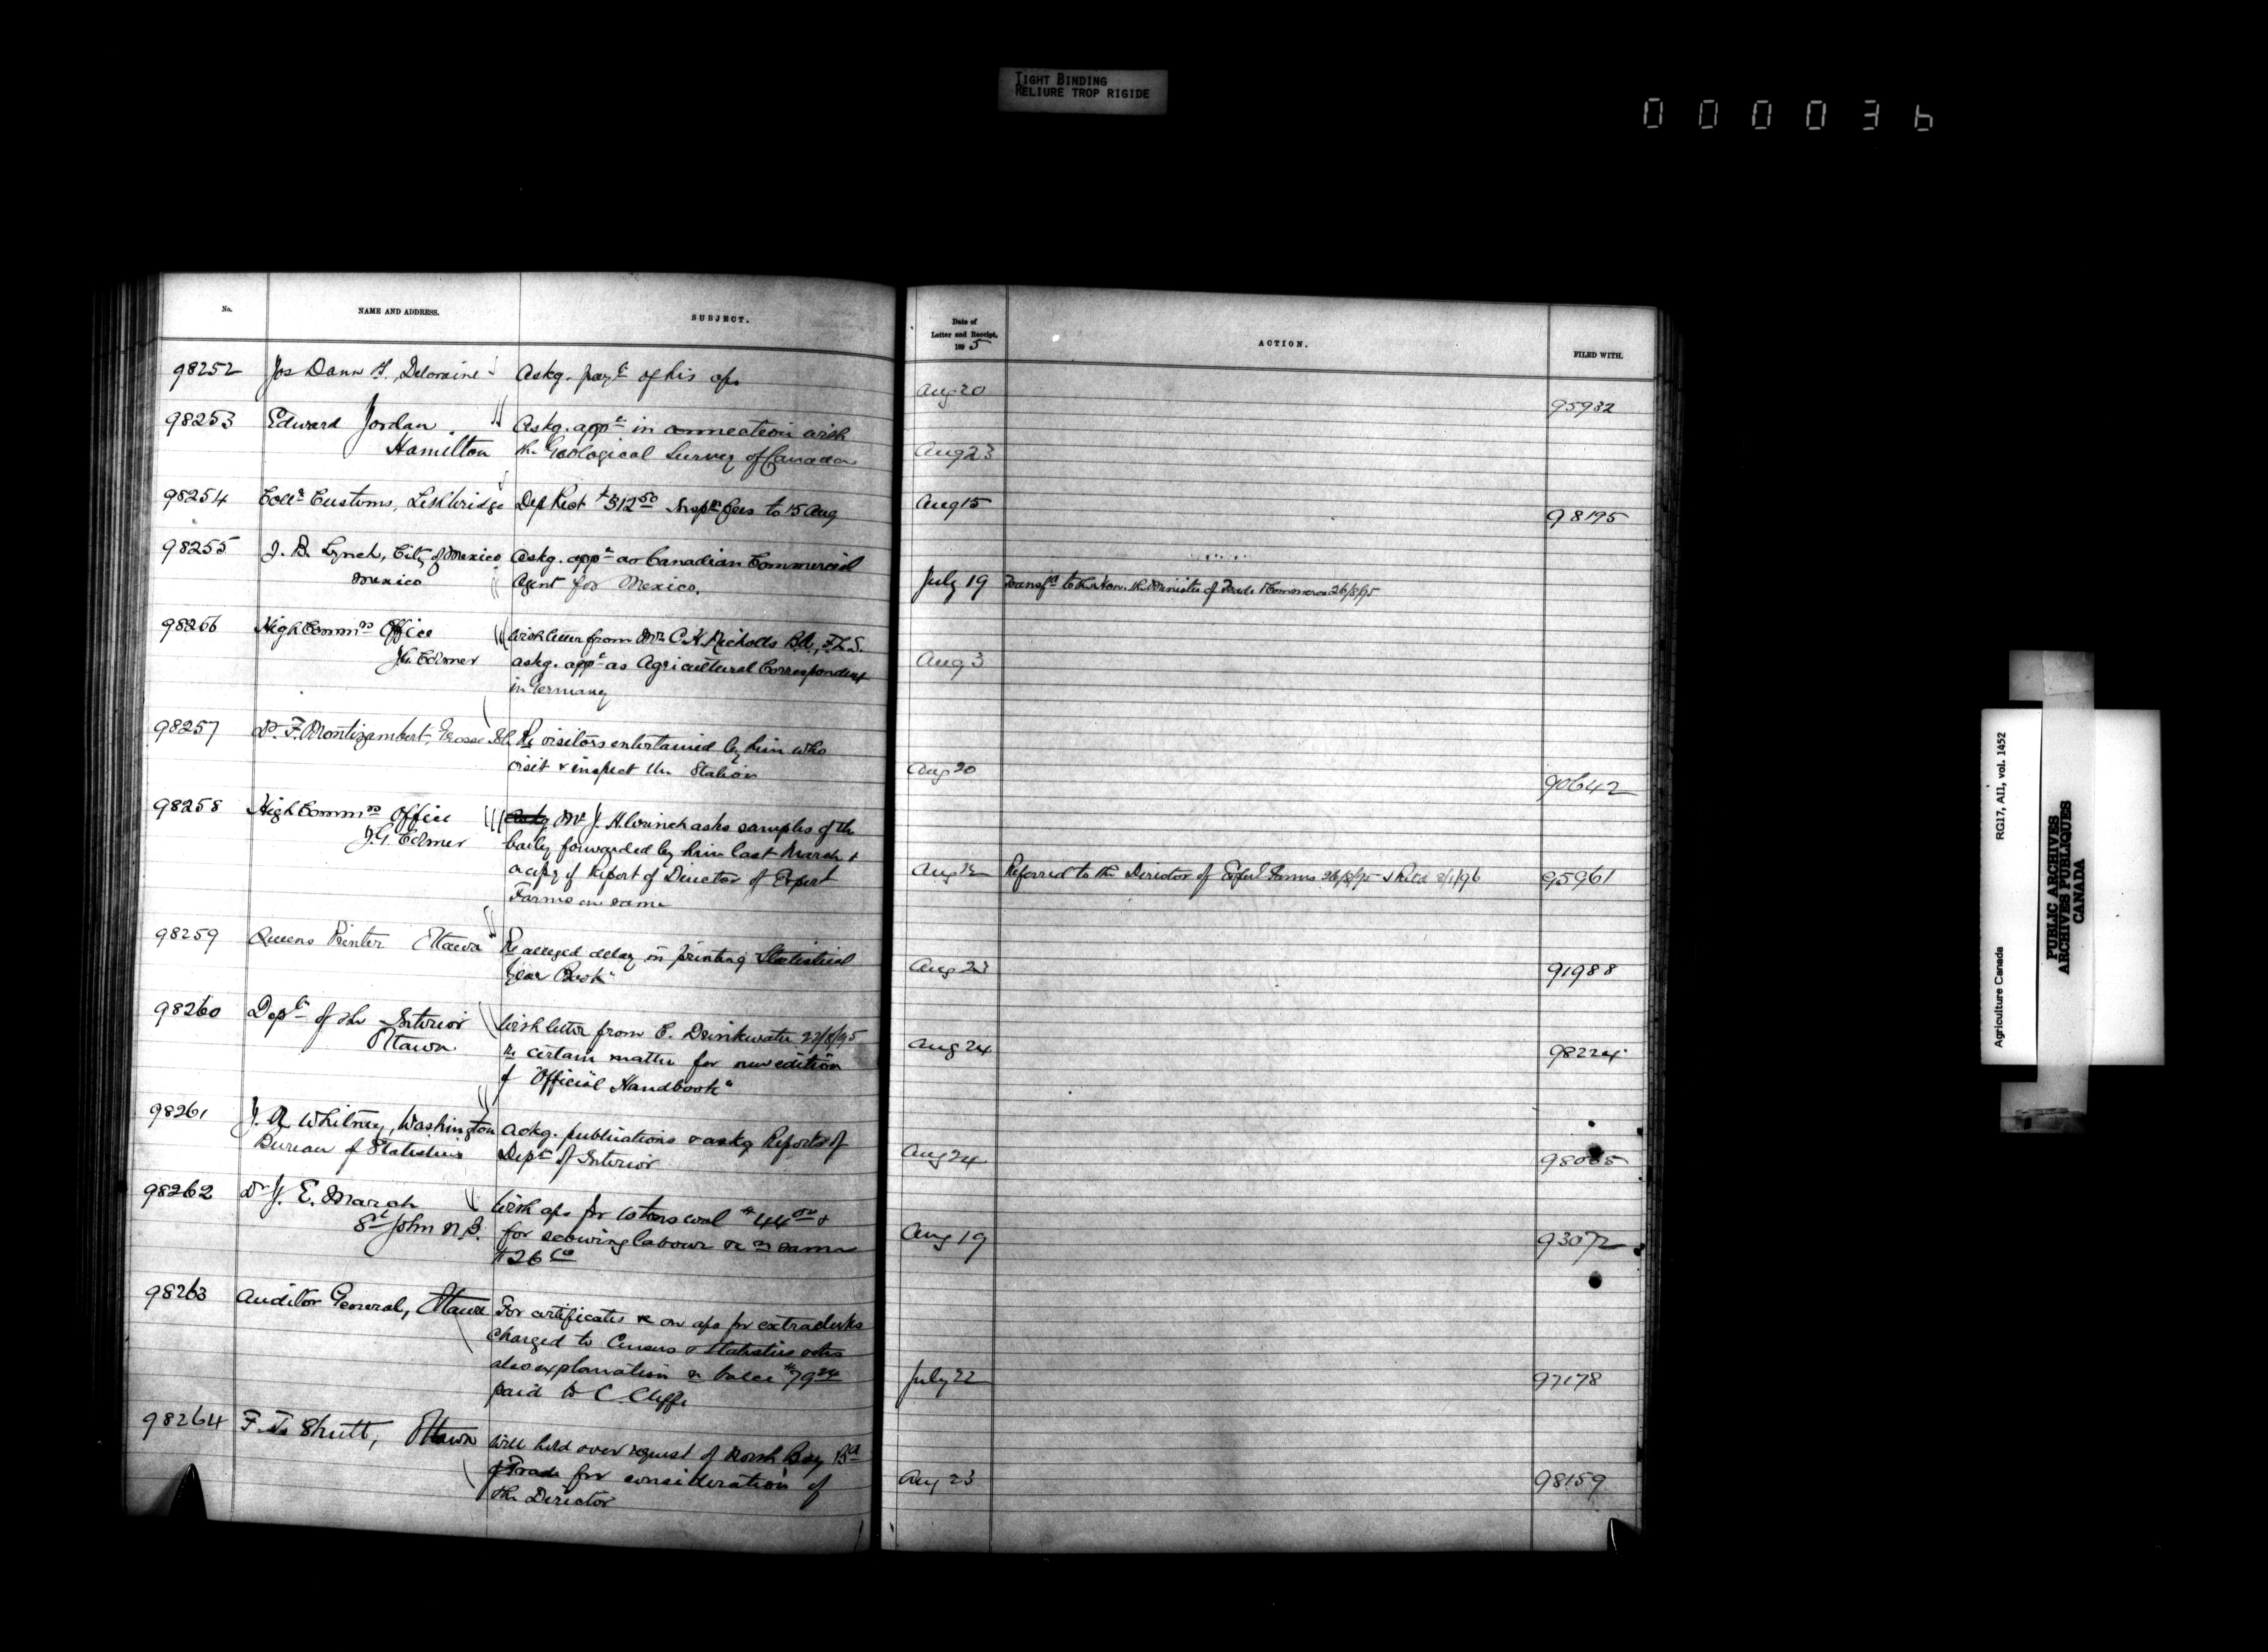 TIGHT BINDING
RELIURE TROP RIGIDE
000036
No.
NAME AND ADDRESS.
SUBJECT.
Date of
Letter and Receipt,
1895
ACTION.
FILED WITH.
98252 Jos Dann Deloraine Askg. payt of his a/c
Aug 20 95932
98253 Edward Jordan Askg. appt in connection with
Hamilton the Geological Survey of Canada
Aug 23
98254 Collr Customs, Lethbridge Dep Rect $312.50 Inspn fees to 15 Aug
Aug 15 98195
98255 J. B. Lynch, City of Mexico Askg. appt as Canadian Commercial
Mexico Agent for Mexico.
July 19 Transfd to the Hon. the Minister of Trade & Commerce 26/8/95
98266 High Commrs Office With letter from Mr C. H. Nicholls BA., F.L.S.
J.G. Colmer askg. appt as Agricultural Correspondent
in Germany
Aug 3
98257 Dr. F. Montizambert, Grosse Isle Re visitors entertained by him who
visit & inspect the Station
Aug 20 90642
98258 High Commrs Office Askg Mr J. H. Wrinch asks samples of the
J.G. Colmer barley forwarded by him last March &
a copy of Report of Director of Expert
Farms on same
Aug 12 Referred to the Director of Experl Farms 26/8/95 & Retd 8/1/96 95961
98259 Queens Printer Ottawa Re alleged delay in printing Statistical
Year Book"
Aug 23 91988
98260 Dept of the Interior With letter from C. Drinkwater 22/8/95
Ottawa. re certain matter for new edition
of "Official Handbook"
Aug 24 98224
98261 J. A. Whitney, Washington Ackg. publications & askg Reports of
Bureau of Statistics Dept of Interior
Aug 24
98262 Dr J. E. March With a/c for 10 tons coal $44.00 &
St John N.B. for labour &c re same
$26
Aug 19 93072
98263 Auditor General, Ottawa For certificates &c on a/cs for extra clerks
charged to Census & Statistics votes
also explanation re balce $79.24
paid to C. Cliffe
July 22 97178
98264 F. T. Shutt, Ottawa Will hold over request of North Bay Bd
of Trade for consideration of
the Director
Aug 23 98159
Agriculture Canada RG17, AII, vol. 1452
PUBLIC ARCHIVES
ARCHIVES PUBLIQUES
CANADA